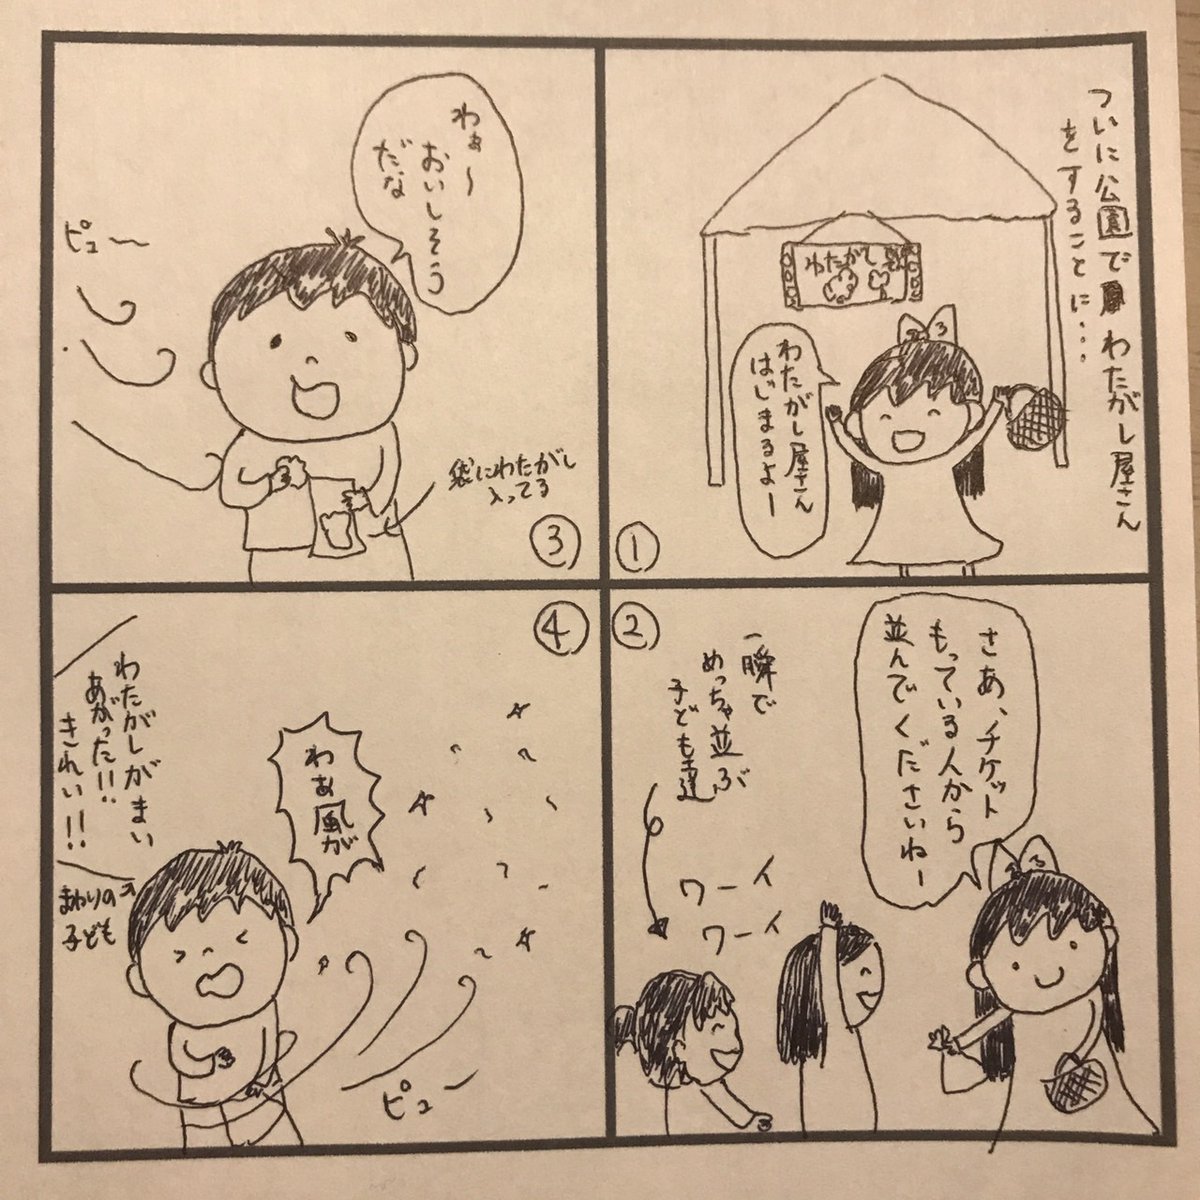 ついに公園でわたがし屋さん
をすることに...
わたがし屋
わたがし屋さん
はじまるよー
①
②
さあ、チケット
もっている人から
並んでくださいねー
一瞬で
めっちゃ並ぶ
子ども達
ワーイ
ワーイ
③
わぁ〜
おいしそう
だな
ピューー
袋にわたがし
入ってる
④
わぁ風が
わたがしがまい
あがった!!
きれい!!
まわりの
子ども
ピュー